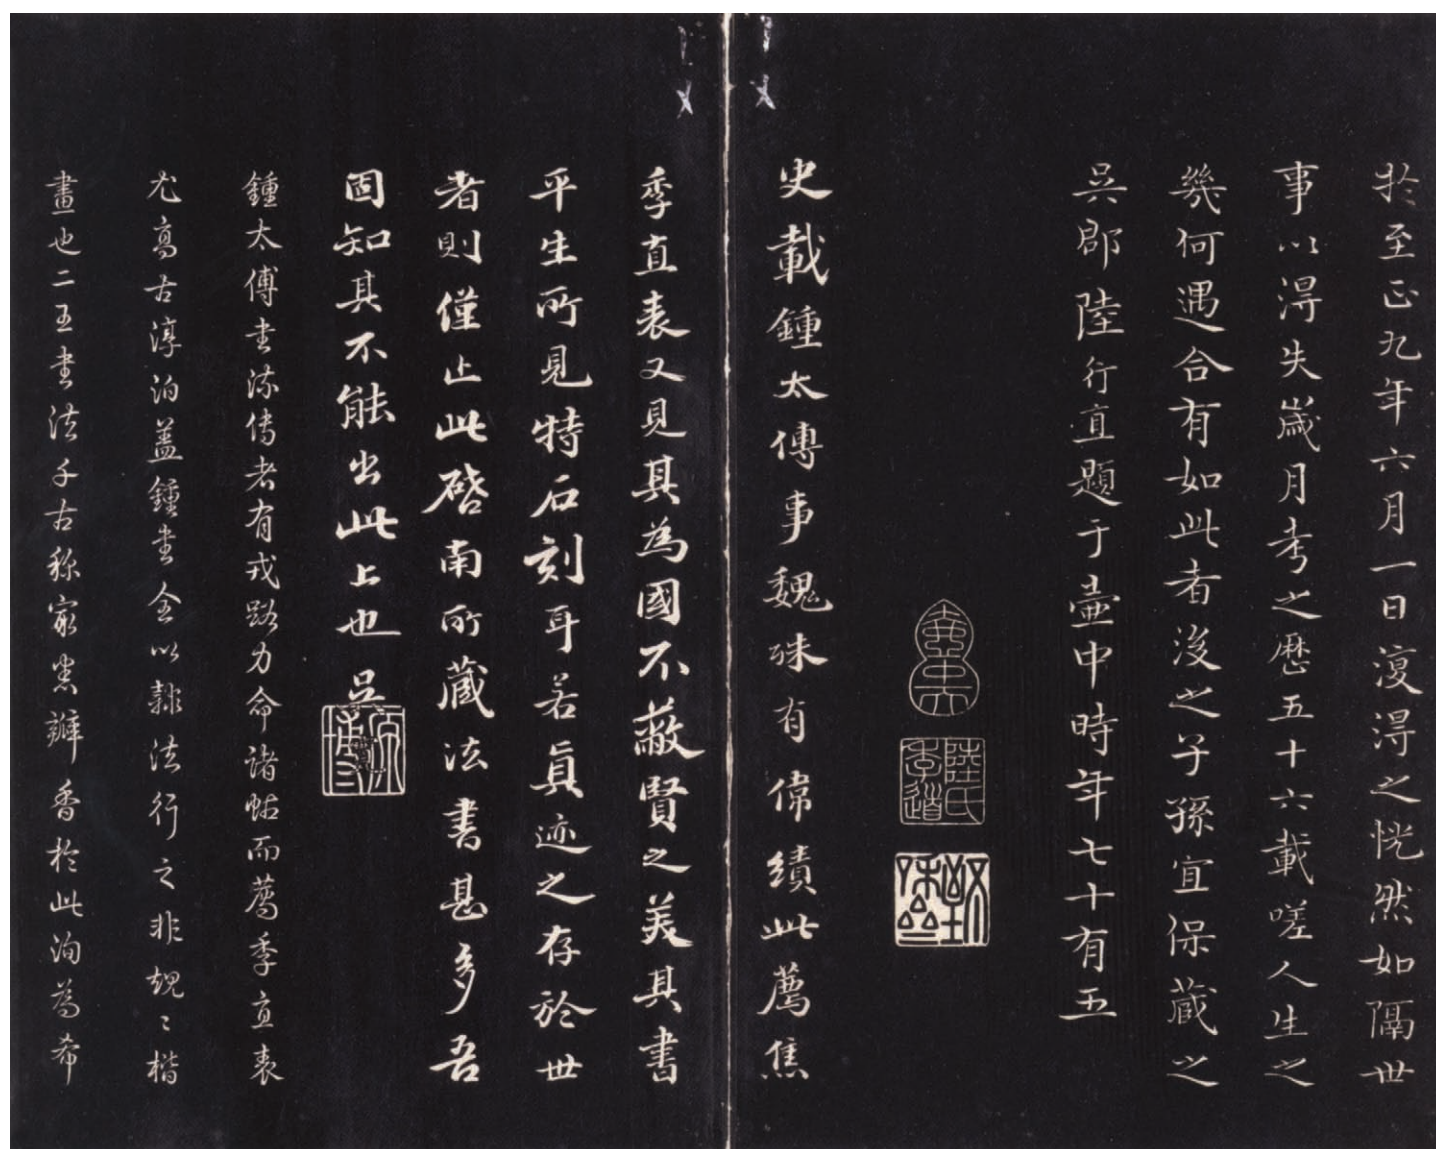 於至正九年六月一日復得之恍然如隔世
事以得失歲月考之歷五十六載嗟人生之
幾何遇合有如此者後之子孫宜保藏之
吳郡陸行直題于壷中時年七十有五
壺中天
陸氏季道
史載鍾太傅事魏殊有偉績此薦焦
季直表又見其為國不蔽賢之美其書
平生所見特石刻耳若真迹之存於世
者則僅止此啓南所藏法書甚多吾
固知其不能出此上也吳
原博
鍾太傅書流傳者有戎路力命諸帖而薦季直表
尤高古淳泊盖鍾書全以隸法行之非規〻楷
畫也二王書法千古稱家寔瓣香於此洵為希